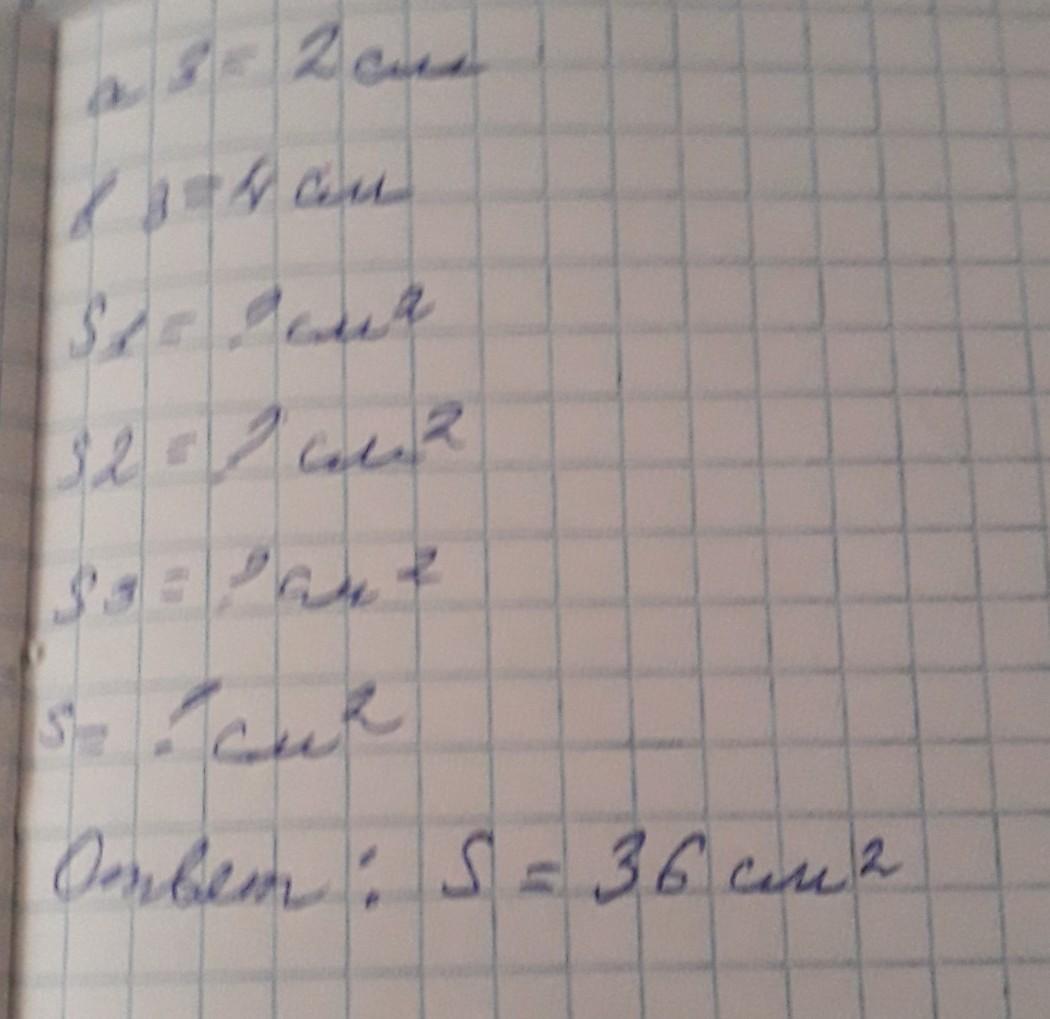 а 3 = 2 см
в 3 = 4 см
S1 = ? см²
S2 = ? см²
S3 = ? см²
S = ? см²
Ответ : S = 36 см²